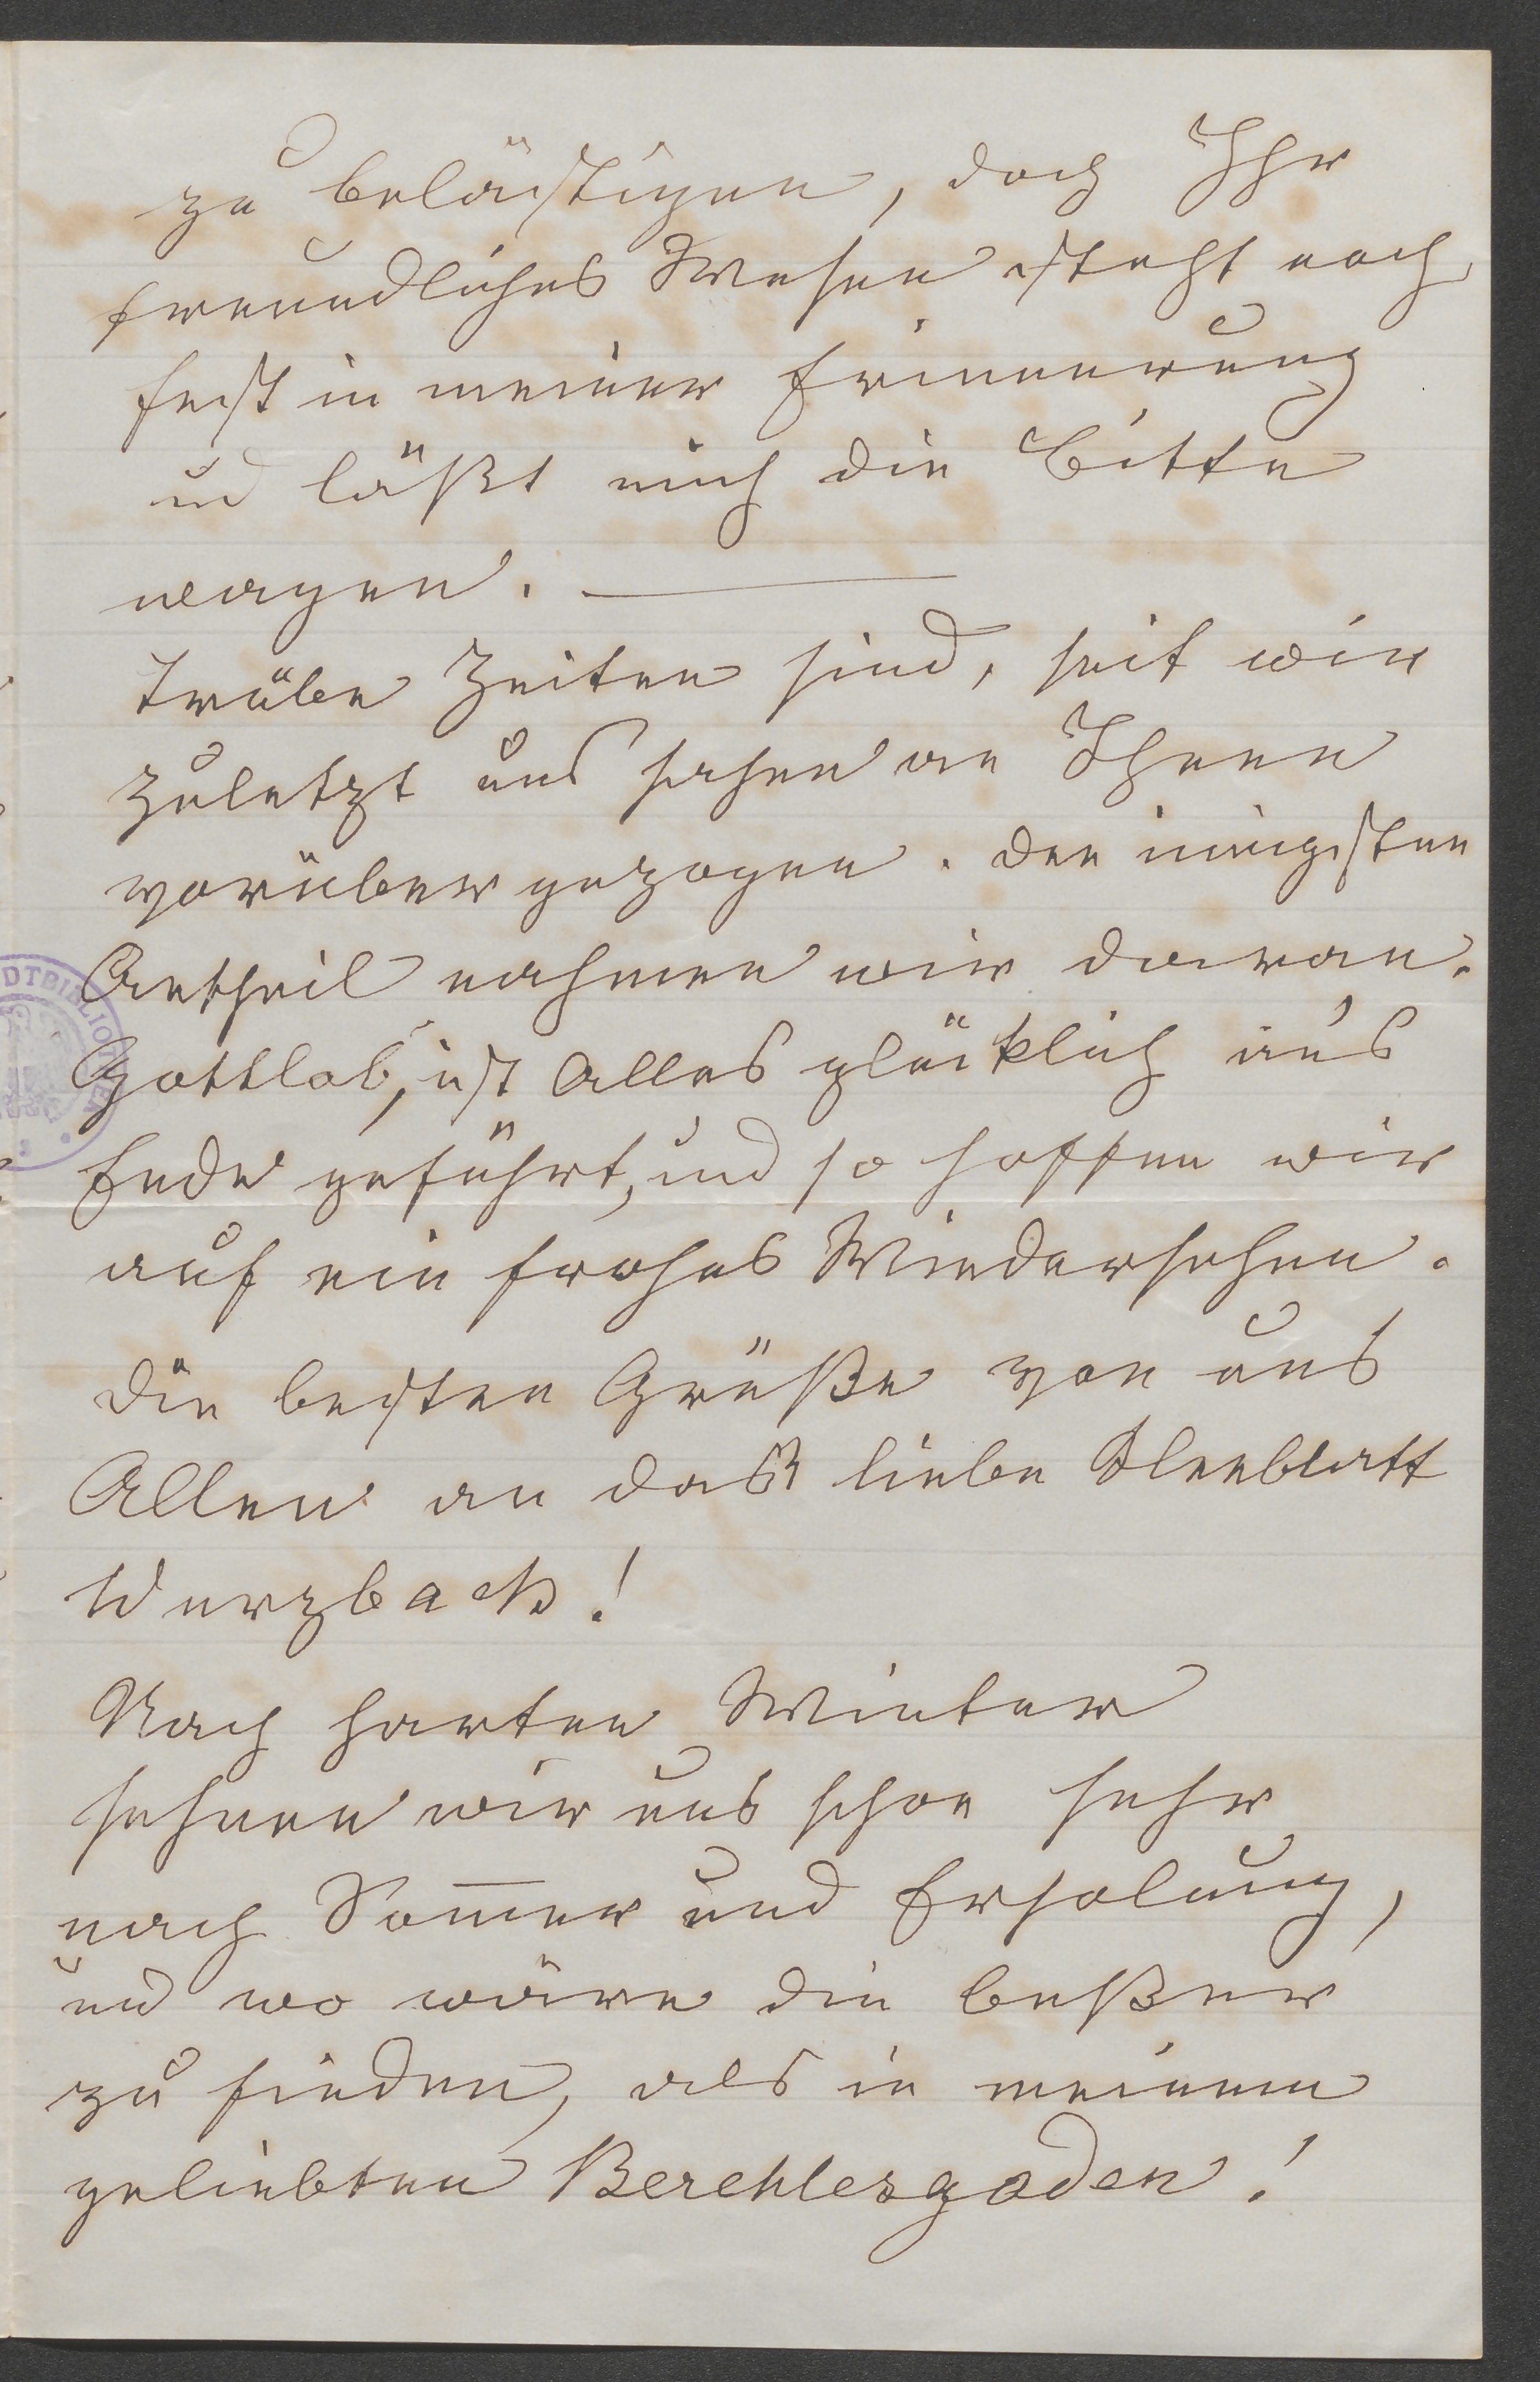 zu belästigen, doch Ihr
freundliches Wesen steht noch
fest in meiner Erinnerung
und läßt mich die Bitte
wagen. —
Trübe Zeiten sind, seit wir
zuletzt uns sahen an Ihnen
vorüber gezogen. Den innigsten
Antheil nahmen wir daran.
Gottlob, ist Alles glücklich ans
Ende geführt, und so hoffen wir
auf ein frohes Wiedersehen.
Die besten Grüße von uns
Allen an daß liebe Kleeblatt
Wurzbach!
Nach harten Winter
sehnen wir uns schon sehr
nach Som̄er und Erholung,
und wo wäre die beßer
zu finden, als in meinem
geliebten Berchtesgaden!